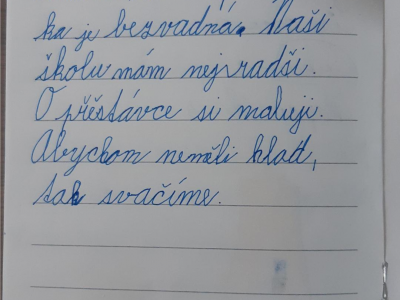 ka je bezvadná. Naši
školu mám nejradši.
O přěstávce si maluji.
Abychom neměli hlad,
tak svačíme.